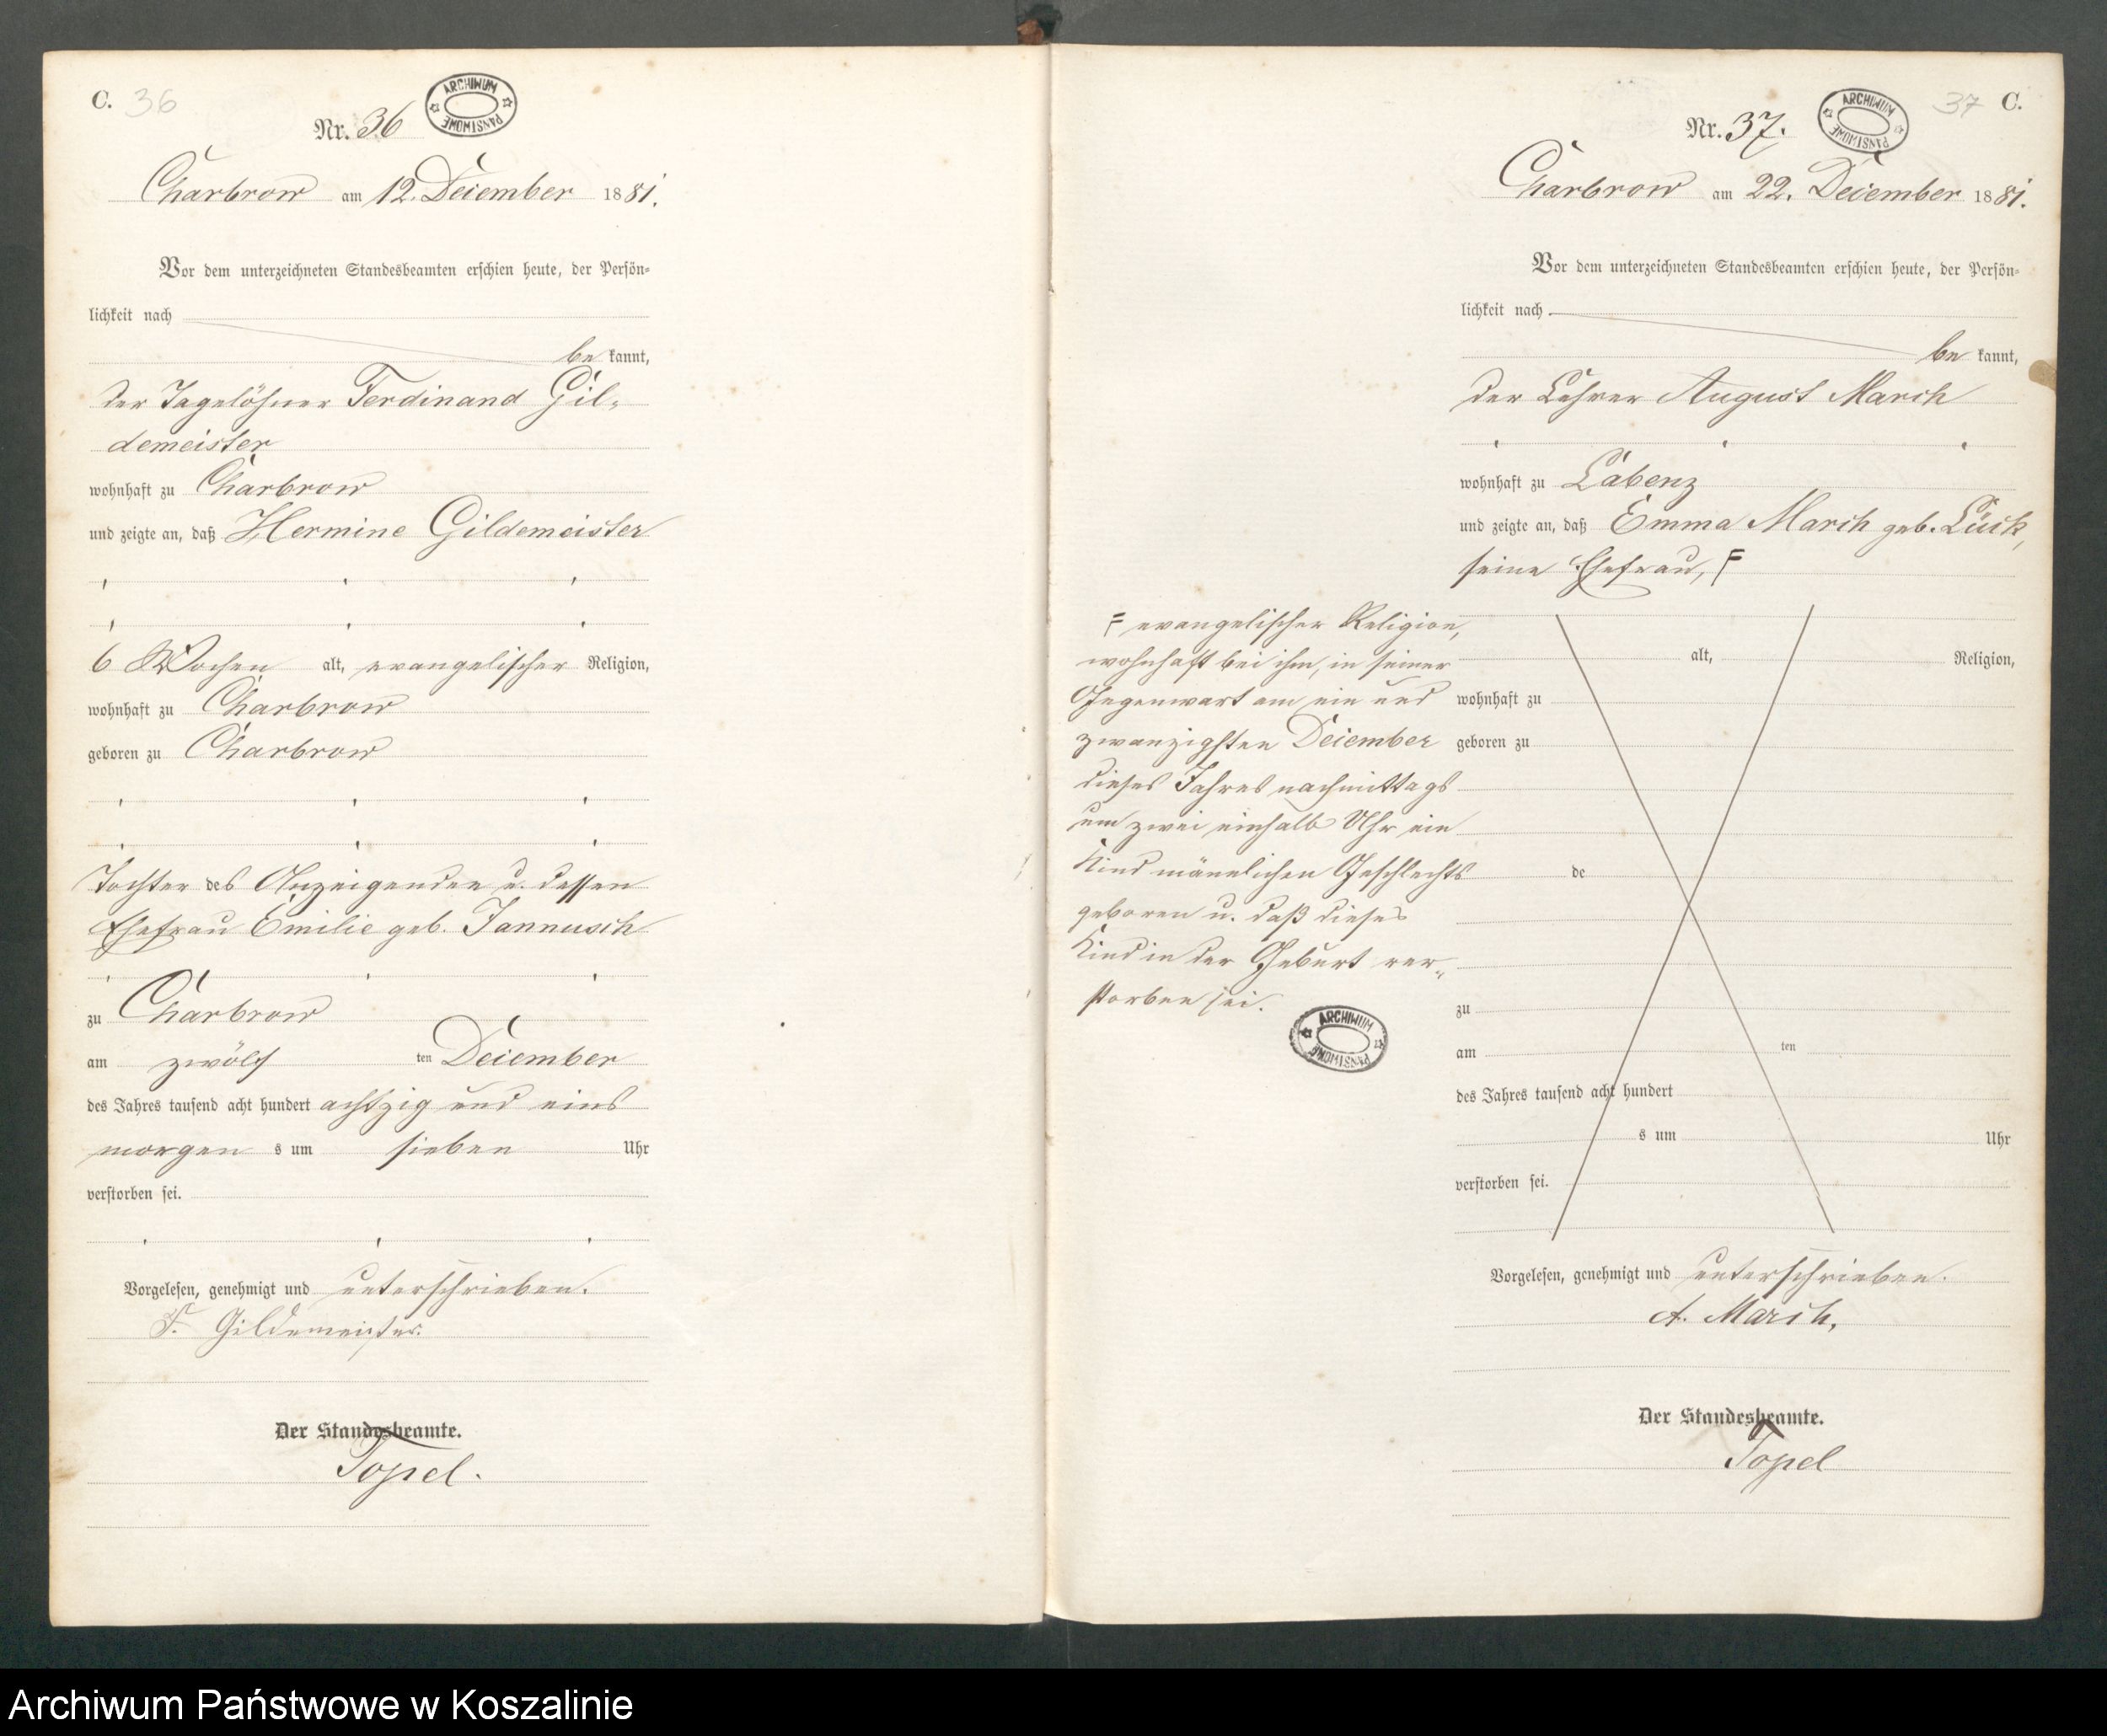 C. 36
Nr. 36
ARCHIWUM PAŃSTWOWE
Charbrow am 12. December 1881.
Vor dem unterzeichneten Standesbeamten erschien heute, der Persön-
lichkeit nach
be kannt,
der Tagelöhner Ferdinand Gil-
demeister
wohnhaft zu Charbrow
und zeigte an, daß Hermine Gildemeister
6 Wochen alt, evangelischer Religion,
wohnhaft zu Charbrow
geboren zu Charbrow
Tochter des Anzeigenden u. dessen
Ehefrau Emilie geb. Jannusch
zu Charbrow
am zwölf ten December
des Jahres tausend acht hundert achtzig und eins
morgen s um sieben Uhr
verstorben sei.
Vorgelesen, genehmigt und unterschrieben.
F. Gildemeister.
Der Standesbeamte.
Topel.
37 C.
Nr. 37.
ARCHIWUM PAŃSTWOWE
Charbrow am 22. December 1881.
Vor dem unterzeichneten Standesbeamten erschien heute, der Persön-
lichkeit nach
be kannt,
der Lehrer August March
wohnhaft zu Labenz
und zeigte an, daß Emma March geb. Lück,
seine Ehefrau, F
F evangelischer Religion,
wohnhaft bei ihm, in seiner
Gegenwart am ein und
zwanzigsten December
dieses Jahres nachmittags
um zwei einhalb Uhr ein
Kind männlichen Geschlechts
geboren u. daß dieses
Kind in der Geburt ver-
storben sei.
ARCHIWUM PAŃSTWOWE
alt, Religion,
wohnhaft zu
geboren zu
de
zu
am ten
des Jahres tausend acht hundert
s um Uhr
verstorben sei.
Vorgelesen, genehmigt und unterschrieben.
A. March.
Der Standesbeamte.
Topel
Archiwum Państwowe w Koszalinie